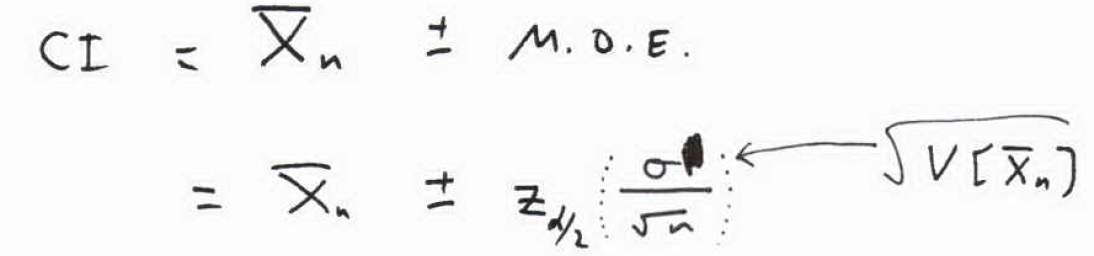 CI = X̅ₙ ± M.O.E.
= X̅ₙ ± z_{α/2} (σ/√n) ← √V[X̅ₙ]